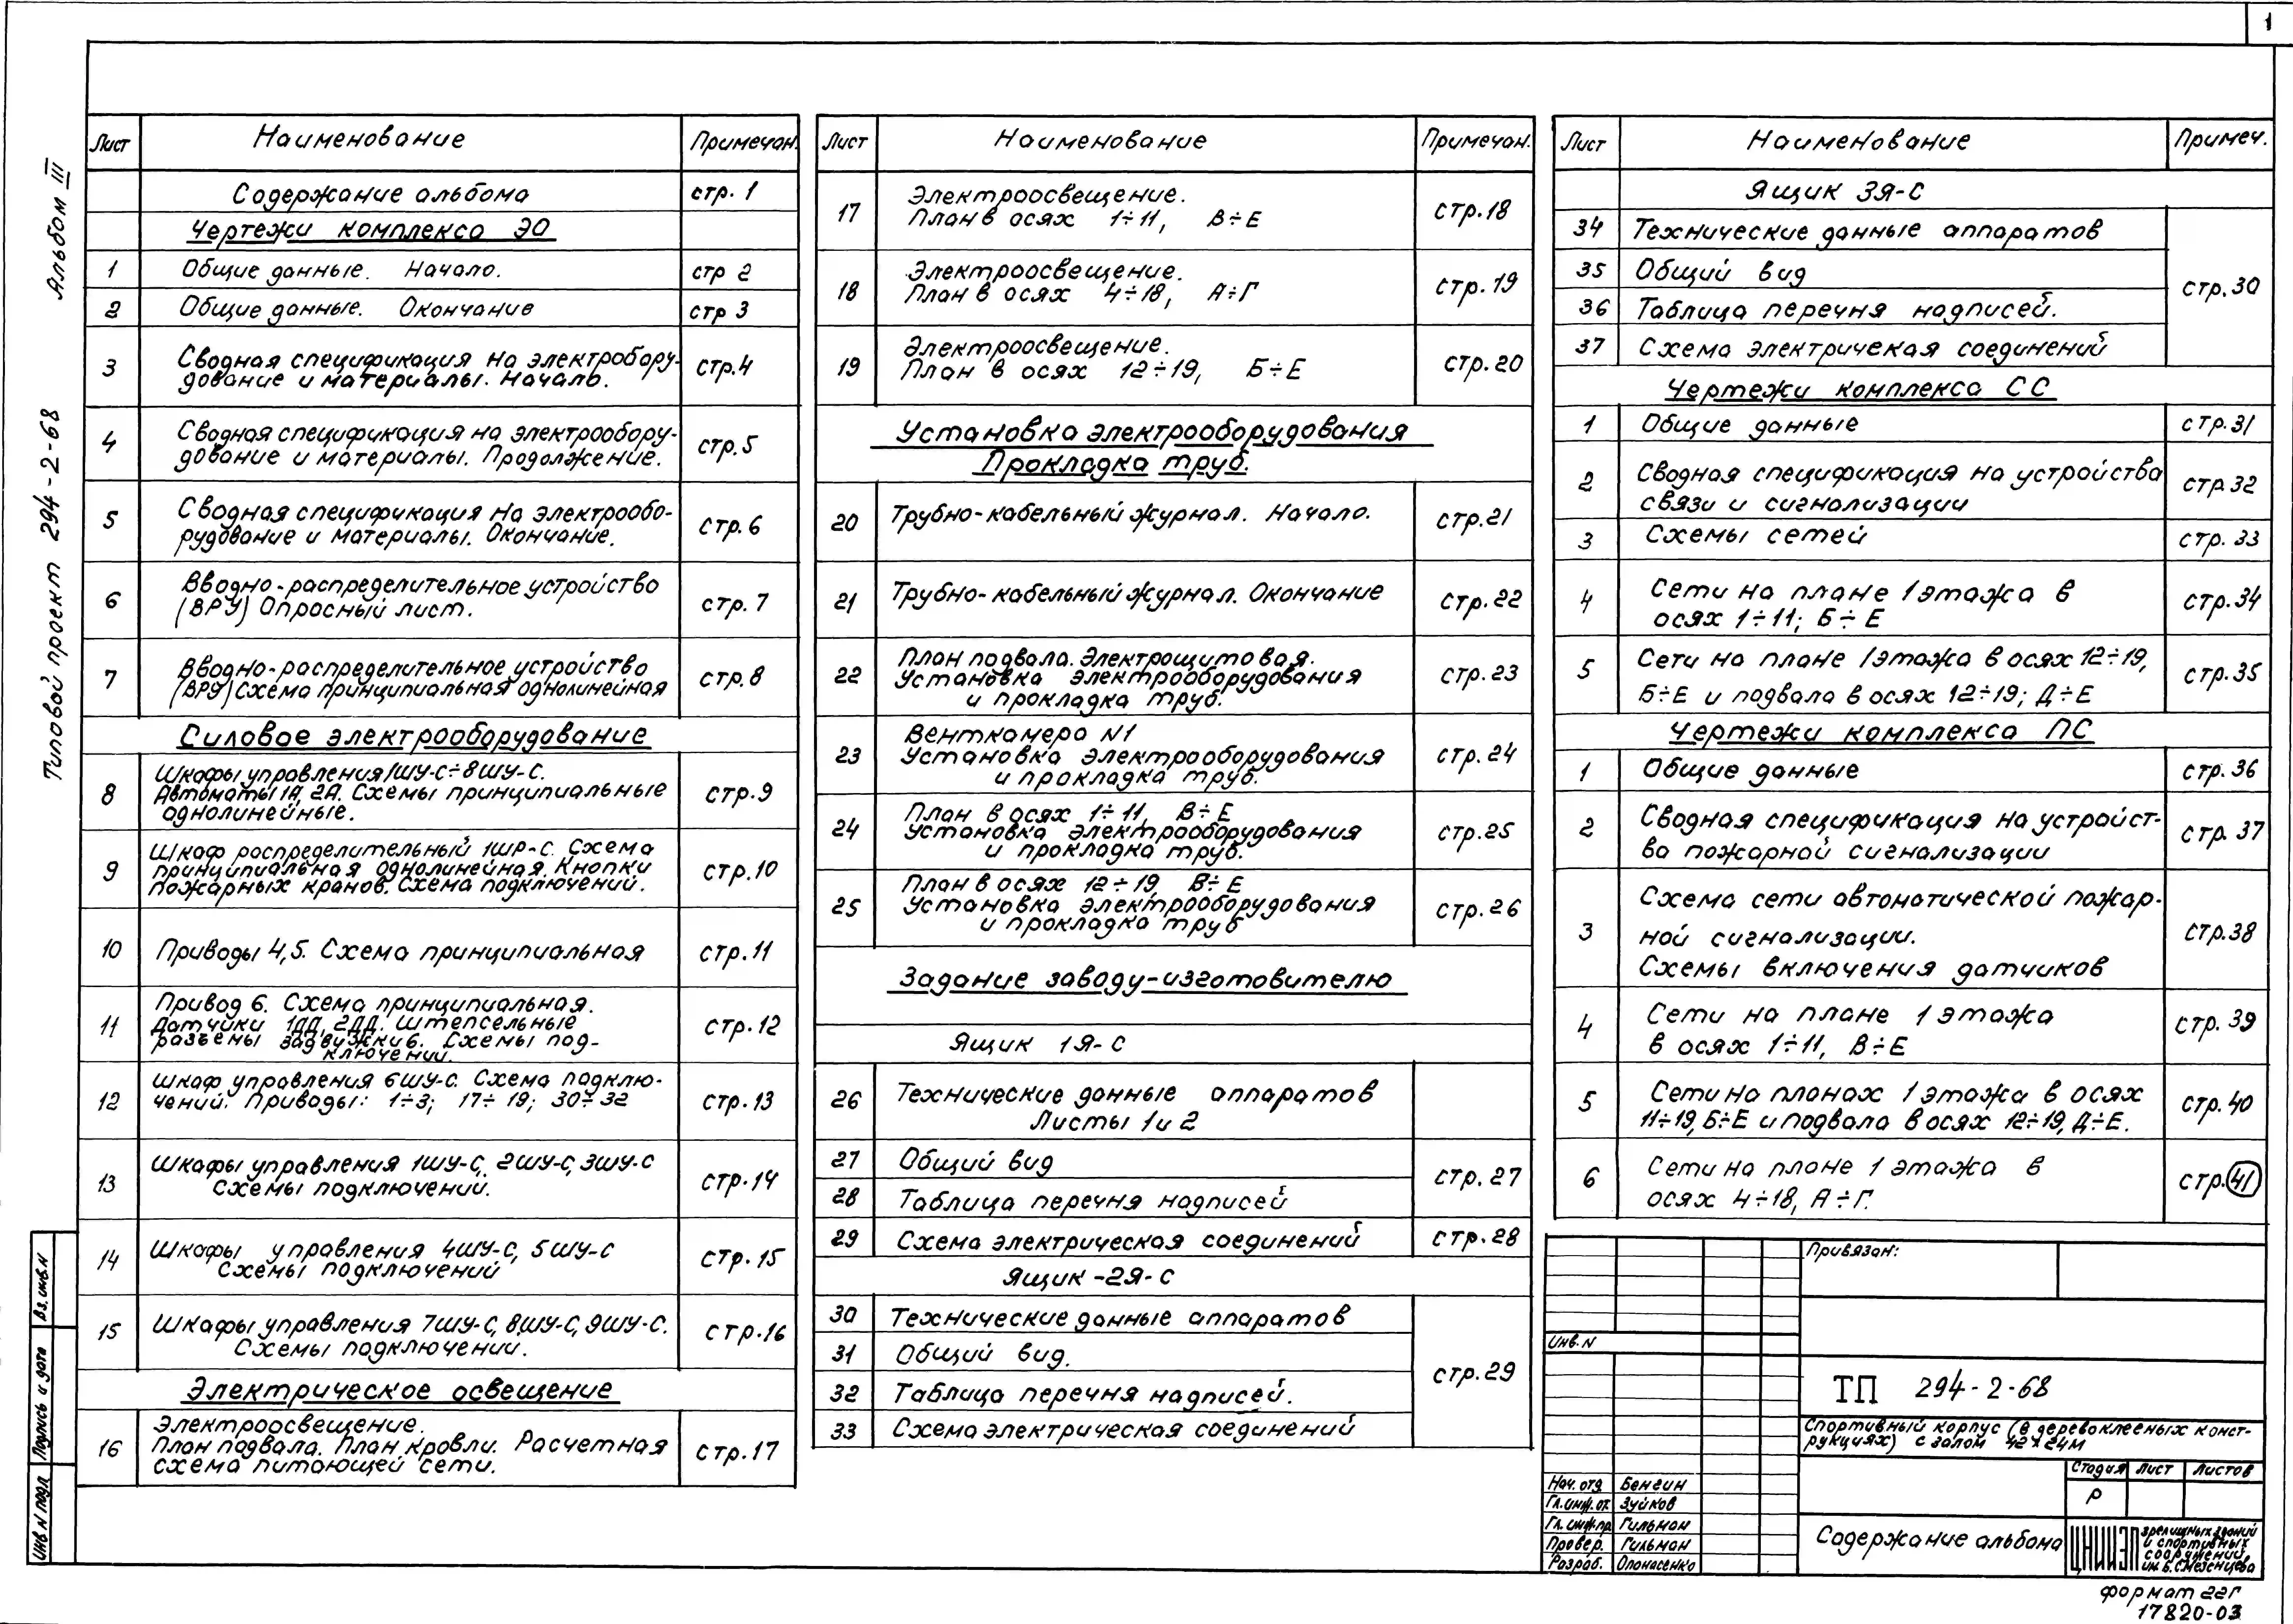 1
Альбом III
Типовой проект 294-2-68
Лист Наименование Примечан.
Содержание альбома стр. 1
Чертежи комплекса ЭО
1 Общие данные. Начало. стр 2
2 Общие данные. Окончание стр 3
3 Сводная спецификация на электробору-
дование и материалы. Начало. стр.4
4 Сводная спецификация на электрообору-
дование и материалы. Продолжение. стр.5
5 Сводная спецификация на электрообо-
рудование и материалы. Окончание. стр.6
6 Вводно-распределительное устройство
(ВРУ) Опросный лист. стр.7
7 Вводно-распределительное устройство
(ВРУ) Схема принципиальная однолинейная стр.8
Силовое электрооборудование
8 Шкафы управления 1ШУ-С÷8ШУ-С.
Автоматы 1А, 2А. Схемы принципиальные
однолинейные. стр.9
9 Шкаф распределительный 1ШР-С. Схема
принципиальная однолинейная. Кнопки
пожарных кранов. Схема подключений. стр.10
10 Приводы 4,5. Схема принципиальная стр.11
11 Привод 6. Схема принципиальная.
Датчики 1ДД, 2ДД. Штепсельные
разъемы задвужкив. Схемы под-
ключений. стр.12
12 Шкаф управления 6ШУ-С. Схема подклю-
чений. Приводы: 1÷3; 17÷19; 30÷32 стр.13
13 Шкафы управления 1ШУ-С, 2ШУ-С, 3ШУ-С
Схемы подключений. стр.14
14 Шкафы управления 4ШУ-С, 5ШУ-С
Схемы подключений стр.15
15 Шкафы управления 7ШУ-С, 8ШУ-С, 9ШУ-С.
Схемы подключений. стр.16
Электрическое освещение
16 Электроосвещение.
План подвала. План кровли. Расчетная
схема питающей сети. стр.17
Лист Наименование Примечан.
17 Электроосвещение.
План в осях 1÷11, В÷Е стр.18
18 Электроосвещение.
План в осях 4÷18, А÷Г стр.19
19 Электроосвещение.
План в осях 12÷19, Б÷Е стр.20
Установка электрооборудования
Прокладка труб.
20 Трубно-кабельный журнал. Начало. стр.21
21 Трубно-кабельный журнал. Окончание стр.22
22 План подвала. Электрощитовая.
Установка электрооборудования
и прокладка труб. стр.23
23 Венткамера N1
Установка электрооборудования
и прокладка труб. стр.24
24 План в осях 1÷11, В÷Е
Установка электрооборудования
и прокладка труб. стр.25
25 План в осях 12÷19, В÷Е
Установка электрооборудования
и прокладка труб стр.26
Задание заводу-изготовителю
Ящик 1Я-С
26 Технические данные аппаратов
Листы 1 и 2
27 Общий вид стр.27
28 Таблица перечня надписей
29 Схема электрическая соединений стр.28
Ящик -2Я-С
30 Технические данные аппаратов
31 Общий вид. стр.29
32 Таблица перечня надписей.
33 Схема электрическая соединений
Лист Наименование Примеч.
Ящик 3Я-С
34 Технические данные аппаратов
35 Общий вид стр.30
36 Таблица перечня надписей.
37 Схема электричекая соединений
Чертежи комплекса СС
1 Общие данные стр.31
2 Сводная спецификация на устройства
связи и сигнализации стр.32
3 Схемы сетей стр. 33
4 Сети на плане 1 этажа в
осях 1÷11; Б÷Е стр.34
5 Сети на плане 1 этажа в осях 12÷19,
Б÷Е и подвала в осях 12÷19; Д÷Е стр.35
Чертежи комплекса ПС
1 Общие данные стр.36
2 Сводная спецификация на устройст-
ва пожарной сигнализации стр.37
3 Схема сети автоматической пожар-
ной сигнализации.
Схемы включения датчиков стр.38
4 Сети на плане 1 этажа
в осях 1÷11, В÷Е стр. 39
5 Сети на планах 1 этажа в осях
11÷19, Б÷Е и подвала в осях 12÷19, Д÷Е. стр.40
6 Сети на плане 1 этажа в
осях 4÷18, А÷Г. стр.41
Привязан:
Инв.N
ТП 294-2-68
Спортивный корпус (в деревоклееных конст-
рукциях) с залом 42×24м
Стадия Лист Листов
Р
Нач. отд. Бенгин
Гл.инж.от. Зуйков
Гл.инж.пр. Гильман
Провер. Гильман
Разраб. Опонасенко
Содержание альбома
ЦНИИЭП зрелищных зданий
и спортивных
сооружений
им. Б.С.Мезенцева
формат 22Г
17820-03
Вз.инв.N
Подпись и дата
Инв N подл